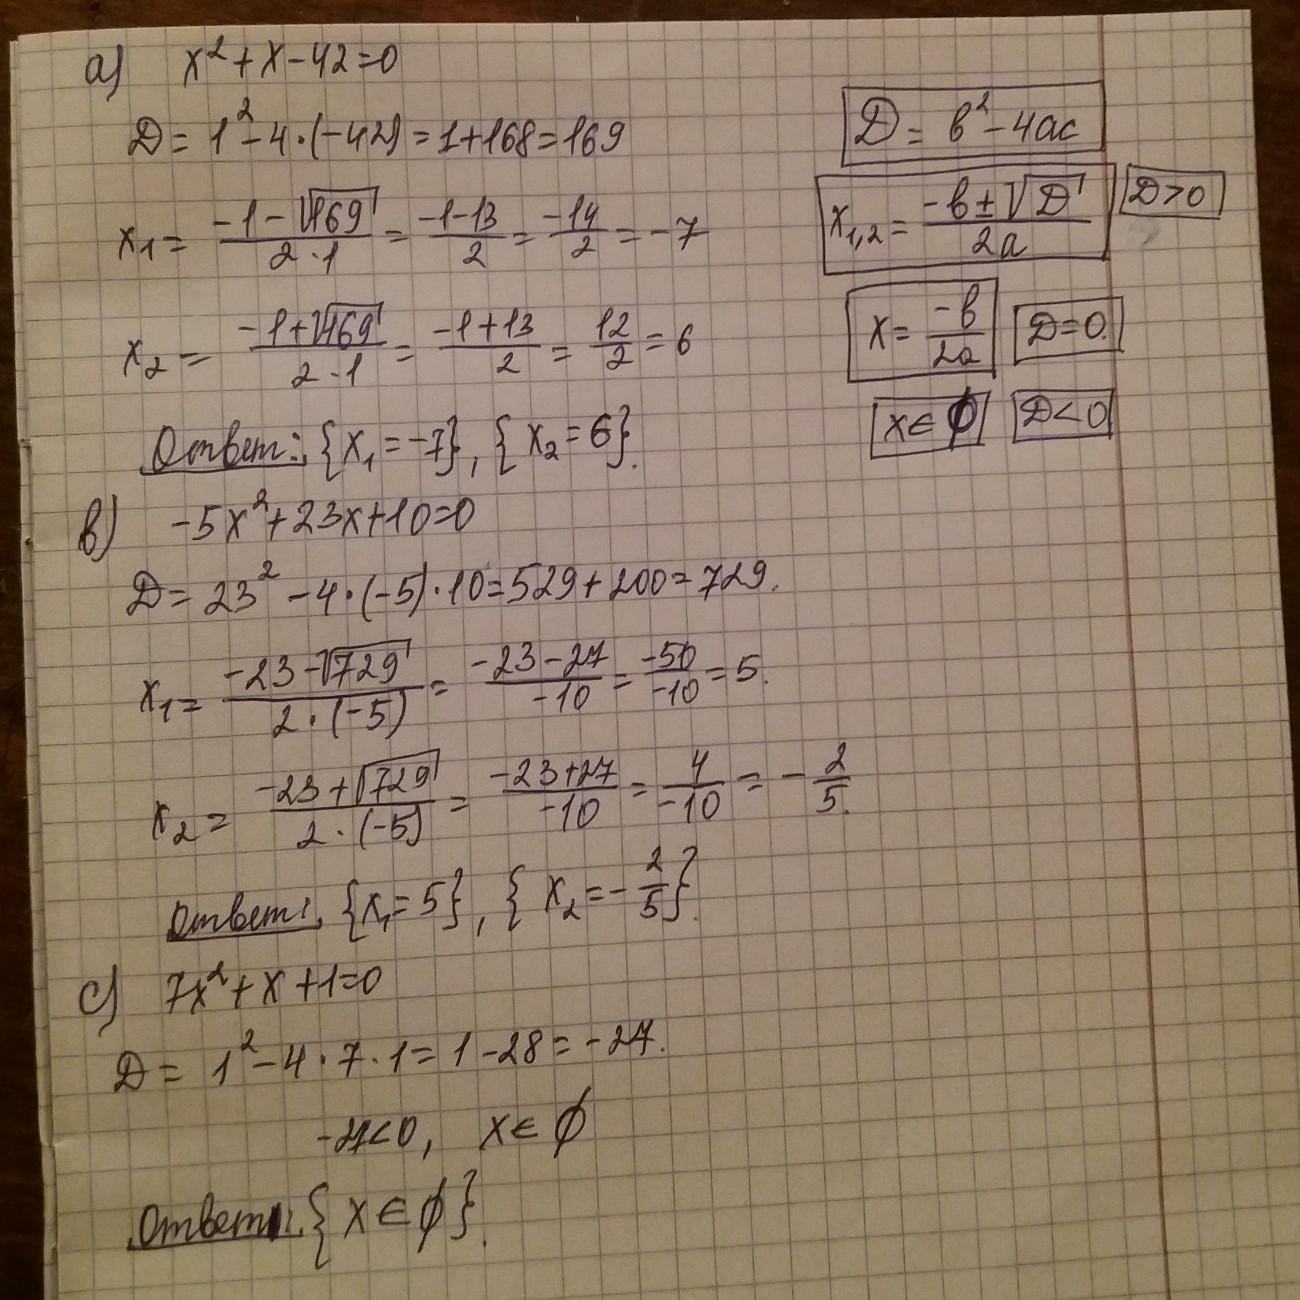 а) x² + x − 42 = 0
D = 1² − 4 · (−42) = 1 + 168 = 169
x₁ = (−1 − √169)/(2 · 1) = (−1 − 13)/2 = −14/2 = −7
x₂ = (−1 + √169)/(2 · 1) = (−1 + 13)/2 = 12/2 = 6
Ответ: {x₁ = −7}, {x₂ = 6}.
D = b² − 4ac
x₁,₂ = (−b ± √D)/2a D > 0
x = −b/2a D = 0.
x ∈ ∅ D < 0
в) −5x² + 23x + 10 = 0
D = 23² − 4 · (−5) · 10 = 529 + 200 = 729.
x₁ = (−23 − √729)/(2 · (−5)) = (−23 − 27)/−10 = −50/−10 = 5.
x₂ = (−23 + √729)/(2 · (−5)) = (−23 + 27)/−10 = 4/−10 = −2/5.
Ответ: {x₁ = 5}, {x₂ = −2/5}.
с) 7x² + x + 1 = 0
D = 1² − 4 · 7 · 1 = 1 − 28 = −27.
−27 < 0, x ∈ ∅
Ответ: {x ∈ ∅}.